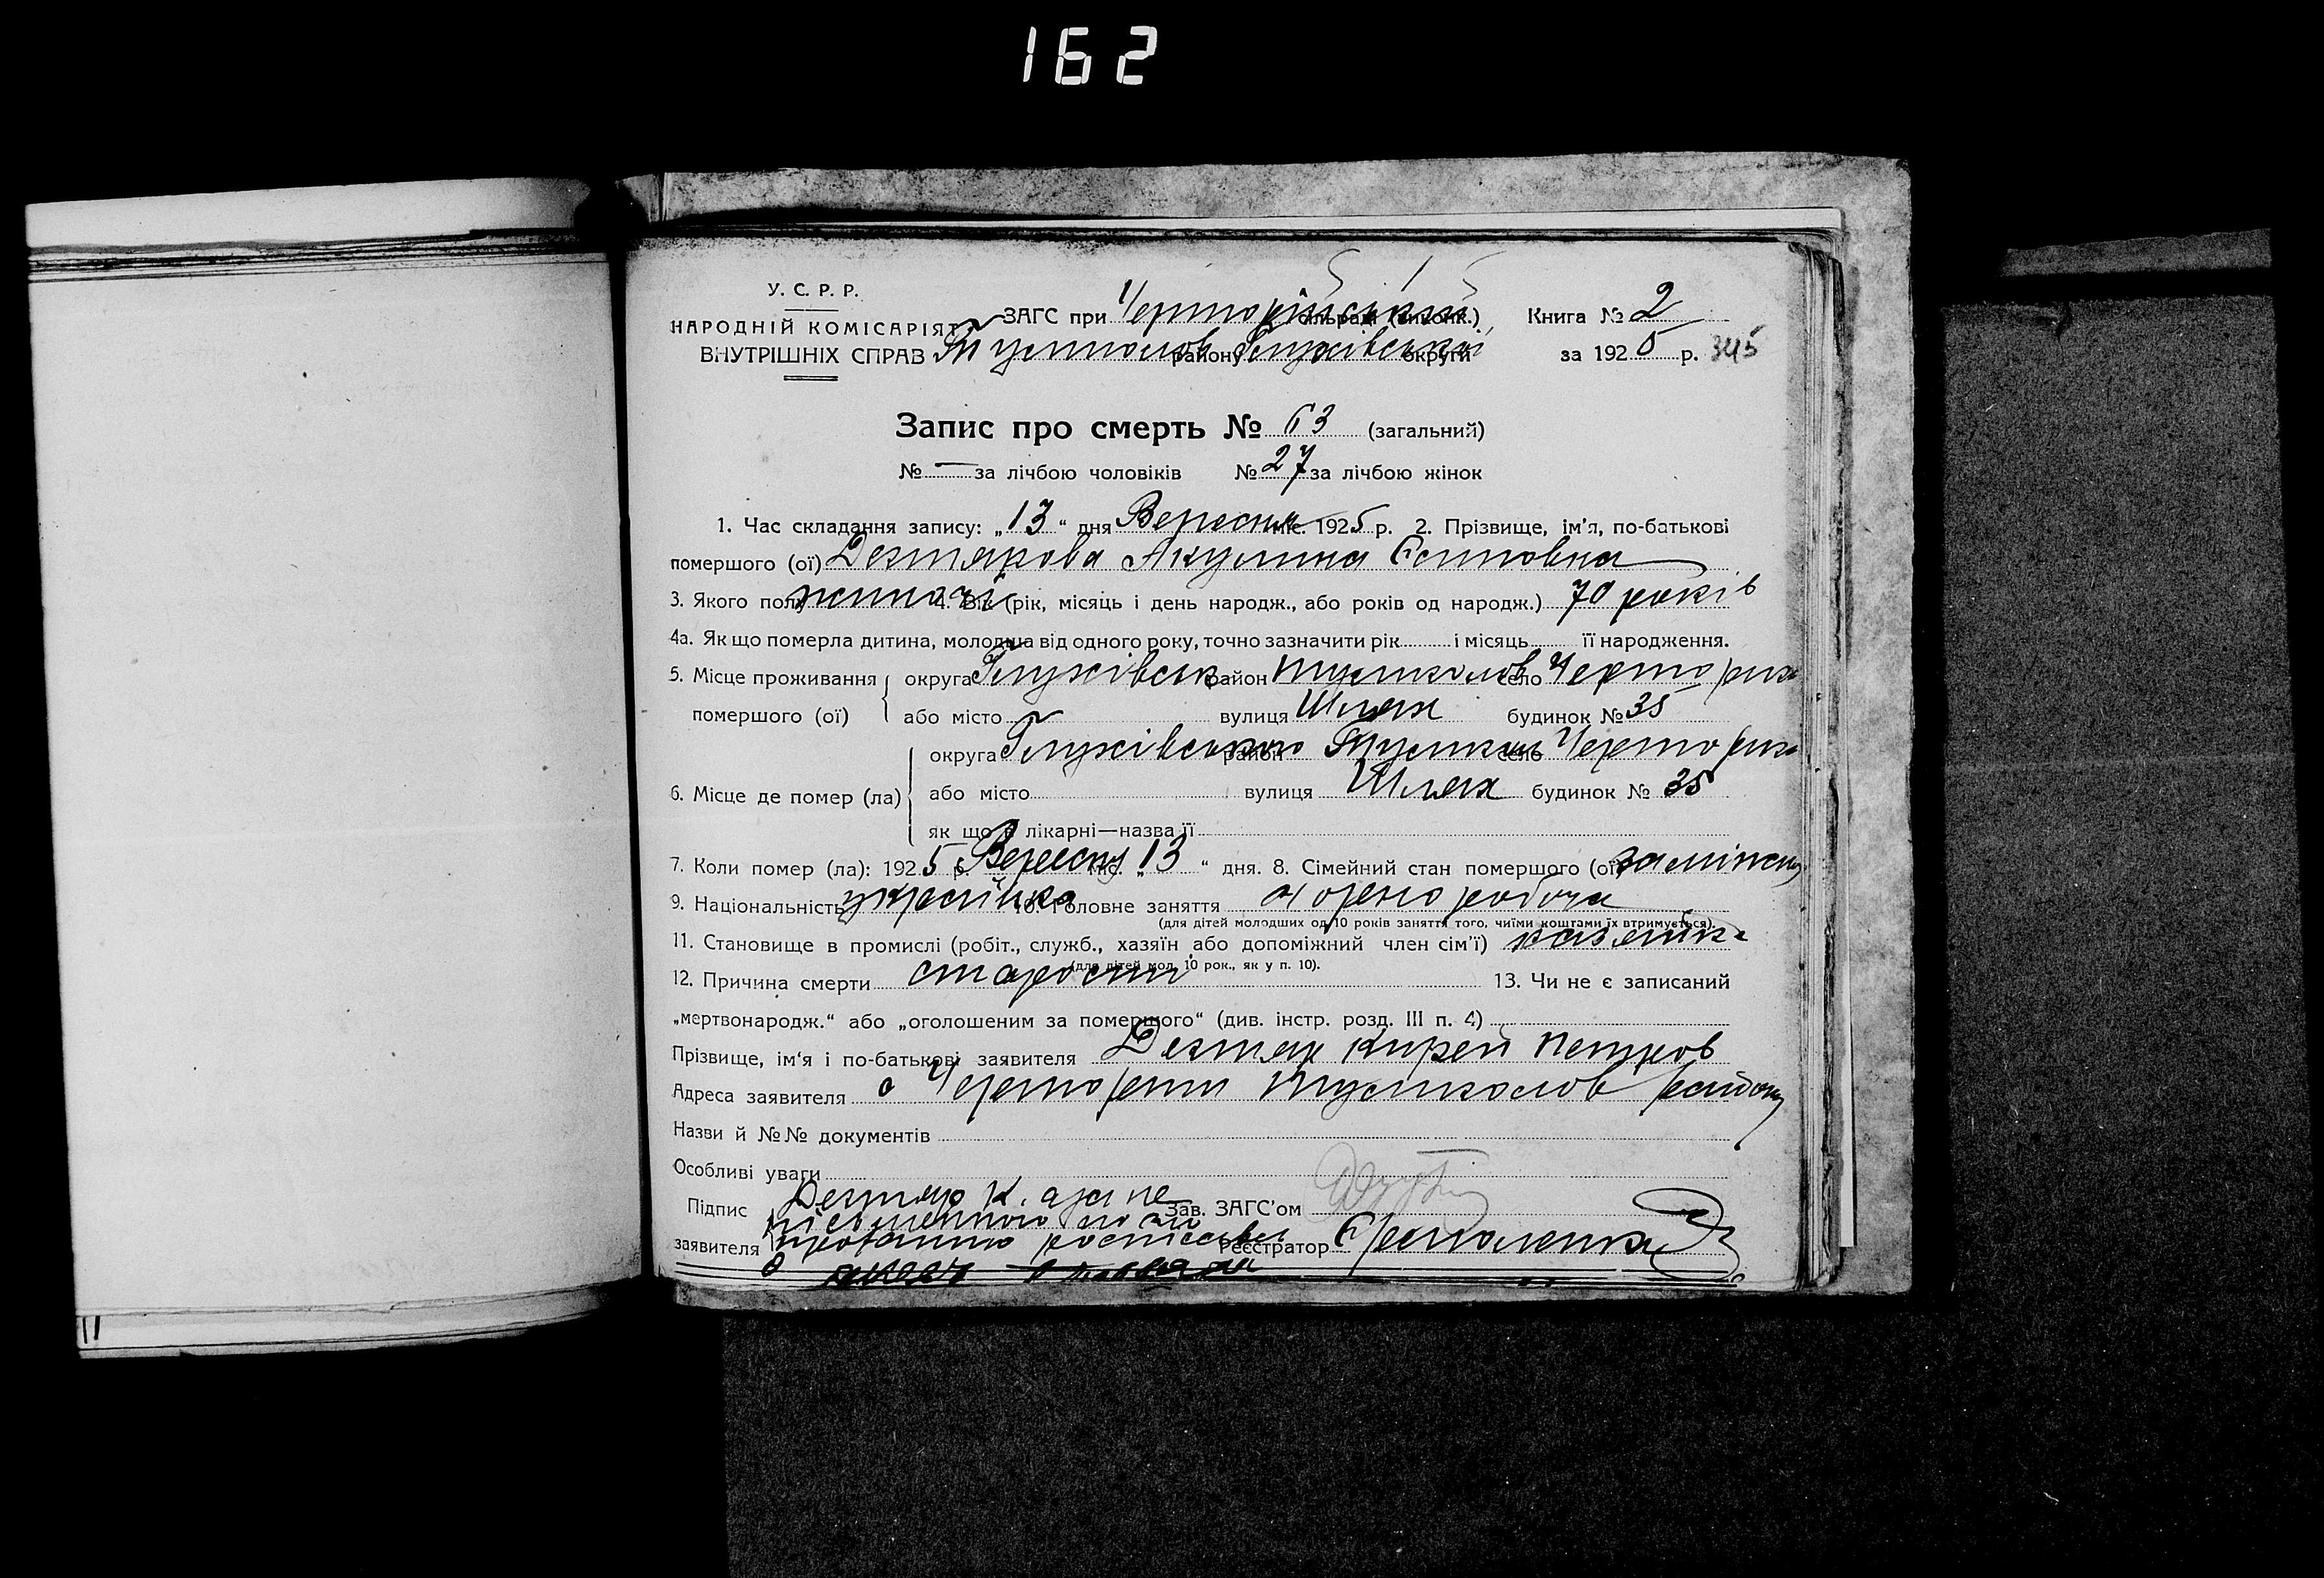 162
У. С. Р. Р.
НАРОДНІЙ КОМІСАРІЯТ
ВНУТРІШНІХ СПРАВ
ЗАГС при Черторійській сільраді (виконк.)
району Глухівської округи
Книга № 2
за 1925 р. 345
Запис про смерть № 63 (загальний)
№ — за лічбою чоловіків № 27 за лічбою жінок
1. Час складання запису: „13“ дня Вересня міс. 1925 р. 2. Прізвище, ім'я, по-батькові
помершого (ої) Дегтярова Акулина
3. Якого полу жиночї 4. Вік (рік, місяць і день народж., або років од народж.) 70 років
4а. Як що померла дитина, молодша від одного року, точно зазначити рік і місяць її народження.
5. Місце проживання помершого (ої) округа Глухівськ район село Черторига
або місто вулиця Шлях будинок № 35
6. Місце де помер (ла) округа Глухівського район село Черторига
або місто вулиця Шлях будинок № 35
як що в лікарні—назва її
7. Коли помер (ла): 1925 р. Вересня міс. „13“ дня. 8. Сімейний стан помершого (ої) заміжня
9. Національність українка 10. Головне заняття хлеборобка
(для дітей молодших од 10 років заняття того, чиїми коштами їх втримується).
11. Становище в промислі (робіт., служб., хазяїн або допоміжний член сім'ї) хазяйка
(для дітей мол. 10 рок., як у п. 10).
12. Причина смерти старости 13. Чи не є записаний
„мертвонародж.“ або „оголошеним за помершого“ (див. інстр. розд. III п. 4)
Прізвище, ім'я і по-батькові заявителя Дегтяр Кирей Петров
Адреса заявителя с Черториги району
Назви й №№ документів
Особливі уваги
Підпис заявителя Дегтяр К. а за не
Зав. ЗАГС'ом
письменного по его
проханню росписався
Реєстратор